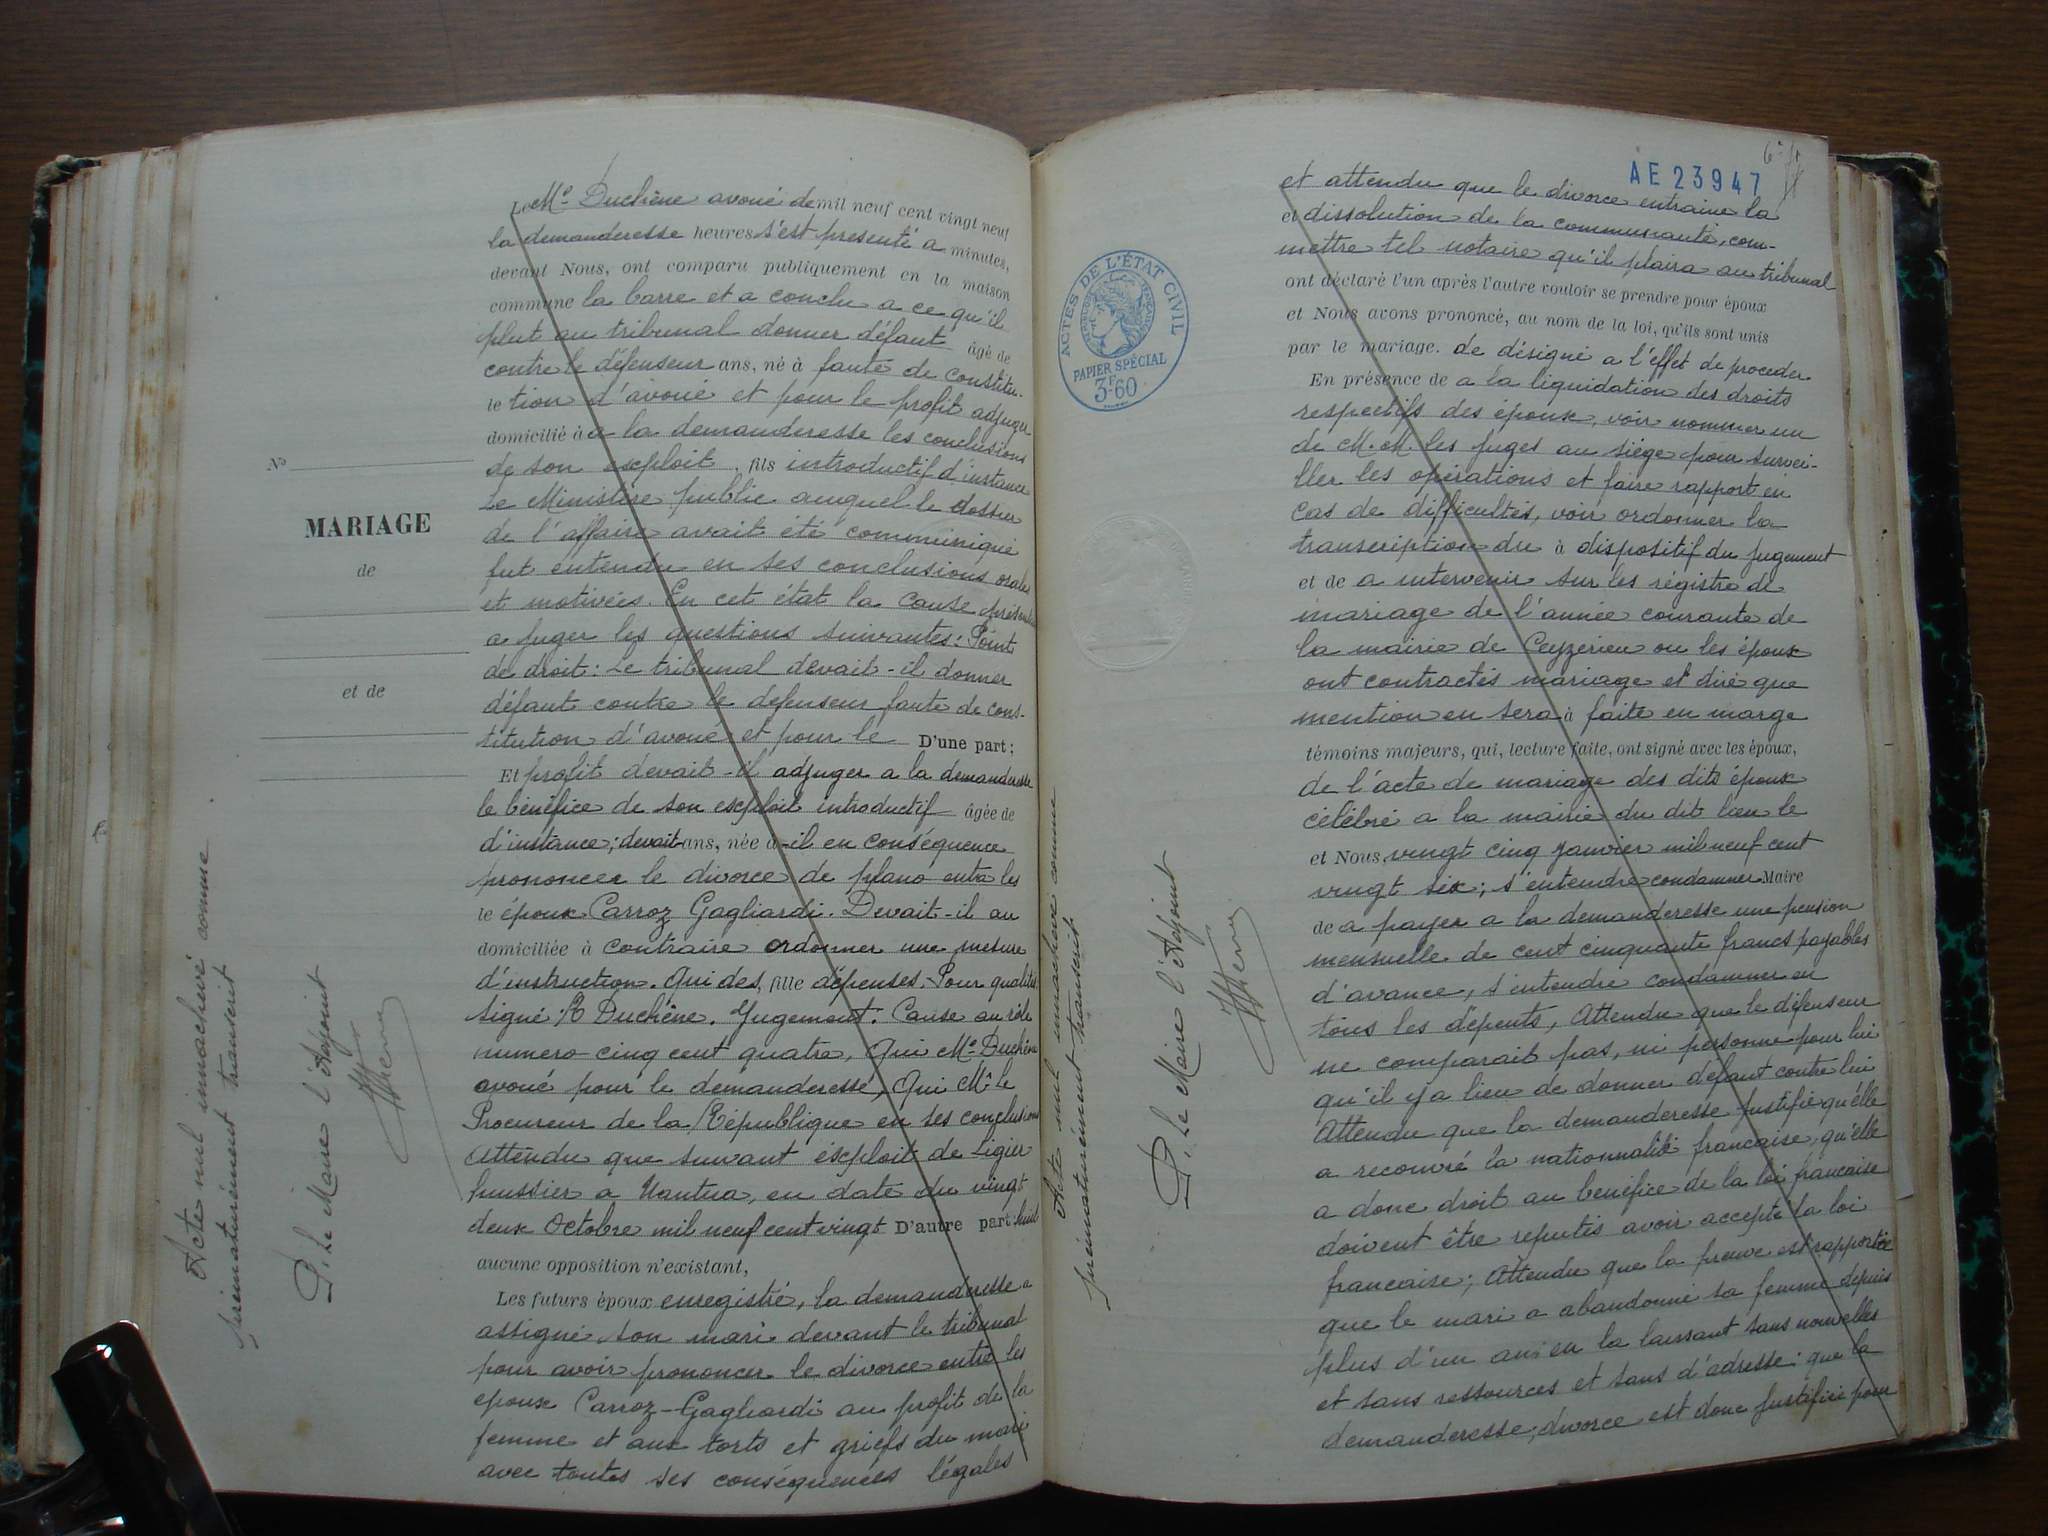 Le Mᵉ Duchêne avoué de mil neuf cent vingt neuf
la demanderesse heures s'est presenté a minutes,
devant Nous, ont comparu publiquement en la maison
commune la barre et a conclu a ce qu'il
plut au tribunal donner défaut âgé de
contre le défenseur ans, né à faute de constitu-
le tion d'avoué et pour le profit adjuger
domicilié à a la demanderesse les conclusions
de son exploit, fils introductif d'instance
Le Ministère public auquel le dossier
de l'affaire avait été communiqué
fut entendu en ses conclusions orales
et motivées. En cet état la cause présentait
a juger les questions suivantes: Point
de droit: Le tribunal devait-il donner
défaut contre le défenseur faute de cons-
titution d'avoué et pour le D'une part;
Et profit devait-il adjuger a la demanderesse
le bénéfice de son exploit introductif âgée de
d'instance; devait- ans, née à -il en conséquence
prononcer le divorce de plano entre les
le époux Carroz Gagliardi. Devait-il au
domiciliée à contraire ordonner une mesure
d'instruction. Qui des, fille dépenses. Pour qualités
signé: R Duchêne. Jugement: Cause au rôle
numero cinq cent quatre, Qui Mᵉ Duchêne
avoué pour le demanderesse, Qui Mʳ le
Procureur de la République en ses conclusions
Attendu que suivant éxploit de Ligier
huissier a Nantua, en date du vingt
deux Octobre mil neuf cent vingt D'autre part; huit
aucune opposition n'existant,
Les futurs époux enregistré, la demanderesse a
assigné son mari devant le tribunal
pour avoir prononcer le divorce entre les
epoux Carroz-Gagliardi au profit de la
femme et aux torts et griefs du mari
avec toutes ses conséquences légales
No
MARIAGE
de
et de
Acte nul innachevé comme
prématurément transcrit
P. Le Maire l'Adjoint
AE 23947
et attendu que le divorce entraine la
et dissolution de la communauté, com-
mettre tel notaire qu'il plaira au tribunal
ont déclaré l'un après l'autre vouloir se prendre pour époux
et Nous avons prononcé, au nom de la loi, qu'ils sont unis
par le mariage. de désigné a l'effet de proceder
En présence de a la liquidation des droits
respectifs des époux, voir nommer un
de M.M. les juges au siége pour survei-
ller les opérations et faire rapport en
cas de difficultés, voir ordonner la
transcription du à dispositif du jugement
et de a intervenir sur les régistre de
mariage de l'année courante de
la mairie de Ceyzerieu ou les époux
ont contractés mariage et dire que
mention en sera à faite en marge
témoins majeurs, qui, lecture faite, ont signé avec les époux,
de l'acte de mariage des dits époux
célébré a la mairie du dit lieu le
et Nous, vingt cinq janvier mil neuf cent
vingt six; s'entendre condamner Maire
de a payer a la demanderesse une pension
mensuelle de cent cinquante francs payables
d'avance, s'entendre condamner en
tous les dépents, Attendu que le défenseur
ne comparait pas, ni personne pour lui
qu'il y a lieu de donner défaut contre lui
Attendu que la demanderesse justifie qu'elle
a recouvré la nationnalité francaise, qu'elle
a donc droit au benéfice de la loi francaise
doivent être reputés avoir accepté la loi
francaise; Attendu que la preuve est rapportée
que le mari a abandonné sa femme depuis
plus d'un an en la laissant sans nouvelles
et sans ressources et sans d'adresse; que la
demanderesse; divorce est donc justifiée pour
ACTES DE L'ÉTAT CIVIL
PAPIER SPÉCIAL
3F60
Acte nul innachevé comme
prématurément transcrit
P. Le Maire l'Adjoint